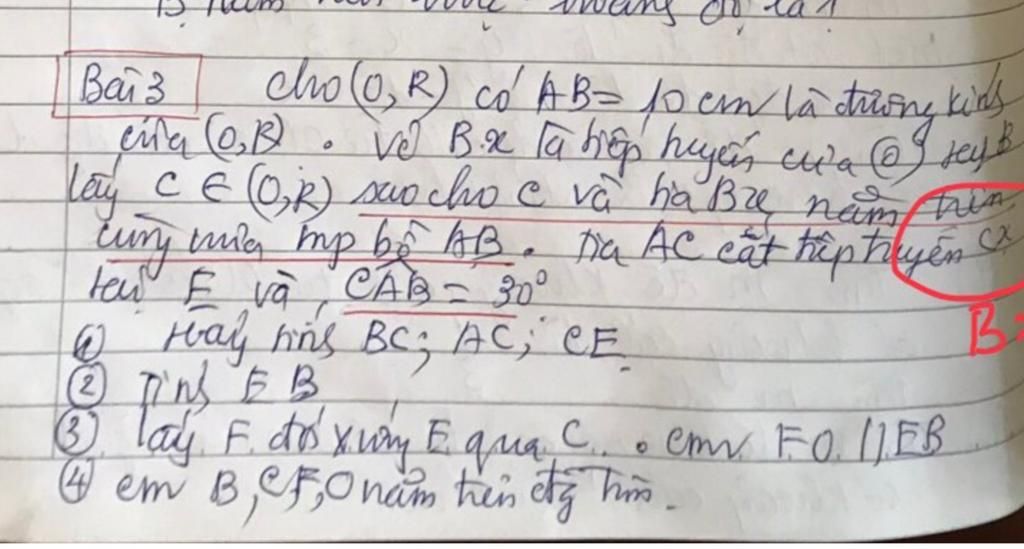 Bài 3 cho (O,R) có AB = 10 cm là đường kính
của (O,R). vẽ Bx là tiếp tuyến của (O) tại B
lấy C ∈ (O,R) sao cho C và tia Bx nằm trên
cùng nửa mp bờ AB. tia AC cắt tiếp tuyến Cx
tại E và CAB = 30°
① Hãy tính BC; AC; CE.
B
② Tính EB
③ lấy F đối xứng E qua C. cmr FO // EB
④ cm B, C, F, O nằm trên đg tròn.